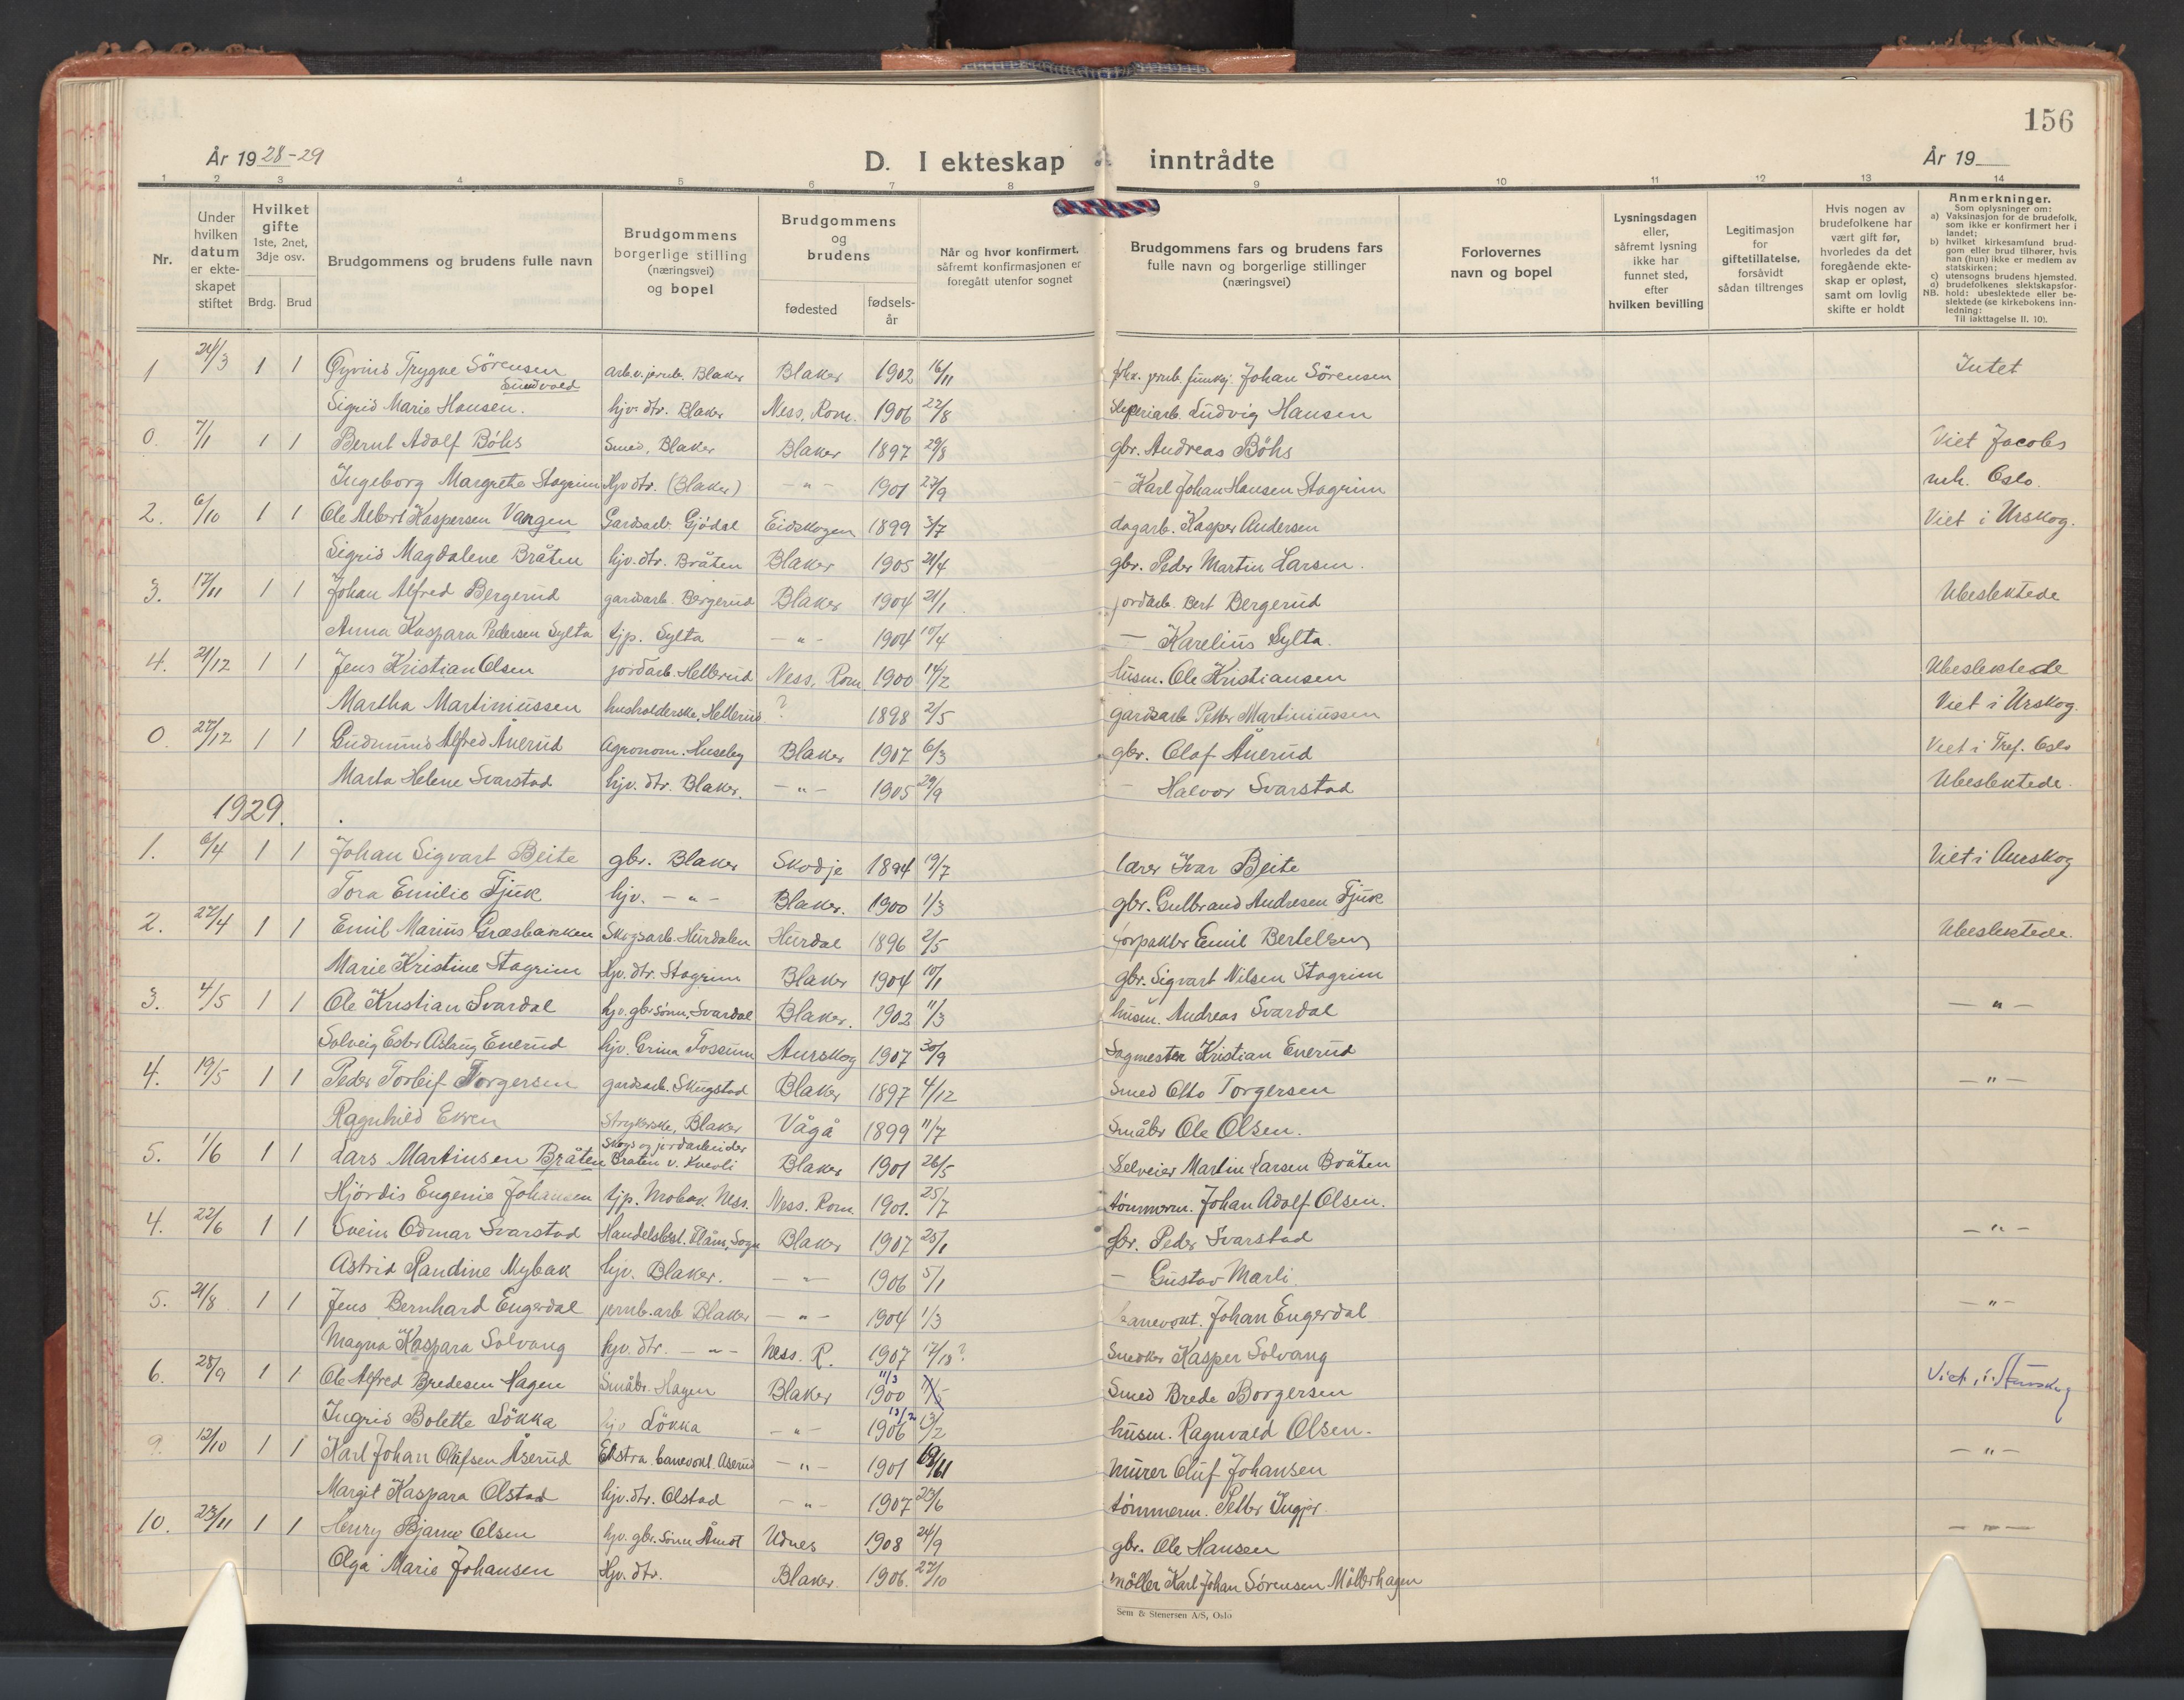 156
År 1928-29
D. I ekteskap inntrådte
År 19
1 2 3 4 5 6 7 8 9 10 11 12 13 14
Nr.
Under hvilken datum er ekteskapet stiftet
Hvilket gifte 1ste, 2net, 3dje osv.
Brdg. Brud
Brudgommens og brudens fulle navn
Brudgommens borgerlige stilling (næringsvei) og bopel
Brudgommens og brudens
fødested
fødsels-år
Når og hvor konfirmert, såfremt konfirmasjonen er foregått utenfor sognet
Brudgommens fars og brudens fars fulle navn og borgerlige stillinger (næringsvei)
Forlovernes navn og bopel
Lysningsdagen eller, såfremt lysning ikke har funnet sted, efter hvilken bevilling
Legitimasjon for giftetillatelse, forsåvidt sådan tiltrenges
Hvis nogen av brudefolkene har vært gift før, hvorledes da det foregående ekteskap er opløst, samt om lovlig skifte er holdt
Anmerkninger.
Som oplysninger om:
a) Vaksinasjon for de brudefolk, som ikke er konfirmert her i landet;
b) hvilket kirkesamfund brudgom eller brud tilhører, hvis han (hun) ikke er medlem av statskirken;
c) utensogns brudens hjemsted.
d) brudefolkenes slektskapsforhold: ubeslektede eller beslektede (se kirkebokens innledning:
NB. Til iakttagelse II. 10).
1 24/3 1 1 Øyvind Trygve Sörensen Sundvold arb. v. jernb. Blaker Blaker 1902 16/11 jernb. Johan Sörensen Intet
Sigrid Marie Hansen. hjv. dtr. Blaker Ness, Rom. 1906 22/8 Sliperiarb. Ludvig Hansen
0. 7/1 1 1 Bernt Adolf Böhs Smed, Blaker Blaker 1897 29/8 gbr. Andreas Böhs Viet Jacobs
Ingeborg Margrethe Stagrim Hjv dtr. (Blaker) - " - 1901 23/9 - Karl Johan Hansen Stagrim mh. Oslo.
2. 6/10 1 1 Ole Albert Kaspersen Vangen Gardsarb. Gjödal Eidskogen 1899 3/7 dagarb. Kasper Andersen Viet i Urskog.
Sigrid Magdalene Bråten hjv. dtr. Bråten Blaker 1905 21/4 gbr. Peder Martin Larsen.
3. 17/11 1 1 Johan Alfred Bergerud gardsarb. Bergerud Blaker 1904 21/1 jordarb. Bert Bergerud Ubeslektede
Anna Kaspara Pedersen Sylta tjp. Sylta - " - 1904 10/4 - Karelius Sylta.
4. 21/12 1 1 Jens Kristian Olsen jordarb. Hellerud Ness, Rom. 1900 14/2 husm. Ole Kristiansen Ubeslektede
Martha Martiniussen husholderske, Hellerud ? 1898 2/5 gardsarb Petter Martiniussen Viet i Urskog.
0. 27/12 1 1 Gudmund Alfred Åuerud Agronom. Huseby Blaker 1907 6/3 gbr. Olaf Åuerud Viet i Tref. Oslo
Marta Helene Svarstad hjv. dtr. Blaker. - " - 1905 29/9 - Halvor Svarstad Ubeslektede.
1929.
1. 6/4 1 1 Johan Sigvart Beite gbr. Blaker Skodje 1894 19/7 lærer Ivar Beite Viet i Aurskog
Tora Emilie Tjuk hjv. - " - Blaker. 1900 1/3 gbr. Gulbrand Andresen Tjuk
2. 27/4 1 1 Emil Marius Græsbakken Skogsarb. Hurdalen Hurdal 1896 2/5 forpakter Emil Bertelsen Ubeslektede.
Marie Kristine Stagrim Hjv. dtr. Stagrim Blaker 1904 10/1 gbr. Sigvart Nilsen Stagrim
3. 4/5 1 1 Ole Kristian Svardal hjv. gbr sönn, Svardal Blaker. 1902 11/3 husm. Andreas Svardal - " -
Solveig Ester Aslaug Enerud hjv. Erina Fossum Aurskog 1907 30/9 Sagmester Kristian Enerud
4. 19/5 1 1 Peder Torleif Torgersen gardsarb. Skugstad Blaker 1897 4/12 Smed Otto Torgersen - " -
Ragnhild Ekren Strykerske, Blaker Vågå 1899 11/7 Småbr Ole Olsen.
5. 1/6 1 1 Lars Martinsen Bråten Skogs og jordarbeider Bråten v. Kvevli Blaker 1901 26/5 Selveier Martin Larsen Bråten
Hjördis Eugenie Johansen tjp. Mobak Ness. Ness. Rom 1901. 25/7 tömmerm. Johan Adolf Olsen.
4. 22/6 1 1 Svein Odmar Svarstad Handelsbest. Flåm, Sogn Blaker 1907 25/1 gbr. Peder Svarstad - " -
Astrid Randine Mybak hjv. Blaker. - " - 1906 5/1 - Gustav Marli
5. 21/8 1 1 Jens Bernhard Engerdal jernb.arb Blaker - " - 1904 1/3 banevokt. Johan Engerdal - " -
Magna Kaspara Solvang hjv. dtr. - " - Ness. R. 1907 17/18? Snedker Kasper Solvang
6. 28/9 1 1 Ole Alfred Bredesen Hagen Småbr. Hagen Blaker 1900 11/3 Smed Brede Borgersen Viet, i Aurskog
Ingrid Bolette Lökka hjv Lökka - " - 1906 13/2 13/2 husm. Ragnvald Olsen.
9. 12/10 1 1 Karl Johan Olufsen Åserud Ekstra banevokt. Åserud - " - 1901 murer Oluf Johansen - " -
Margit Kaspara Olstad hjv. dtr. Olstad - " - 1907 23/6 tömmerm. Petter Ingjer.
10. 23/11 1 1 Henry Bjarne Olsen hjv. gbr. sönn Åmot Udnes 1908 24/9 gbr. Ole Hansen - " -
Olga Marie Johansen Hjv. dtr. Blaker. 1906. 27/10 möller Karl Johan Sörensen Möllerhagen
Sem & Stenersen A/S, Oslo